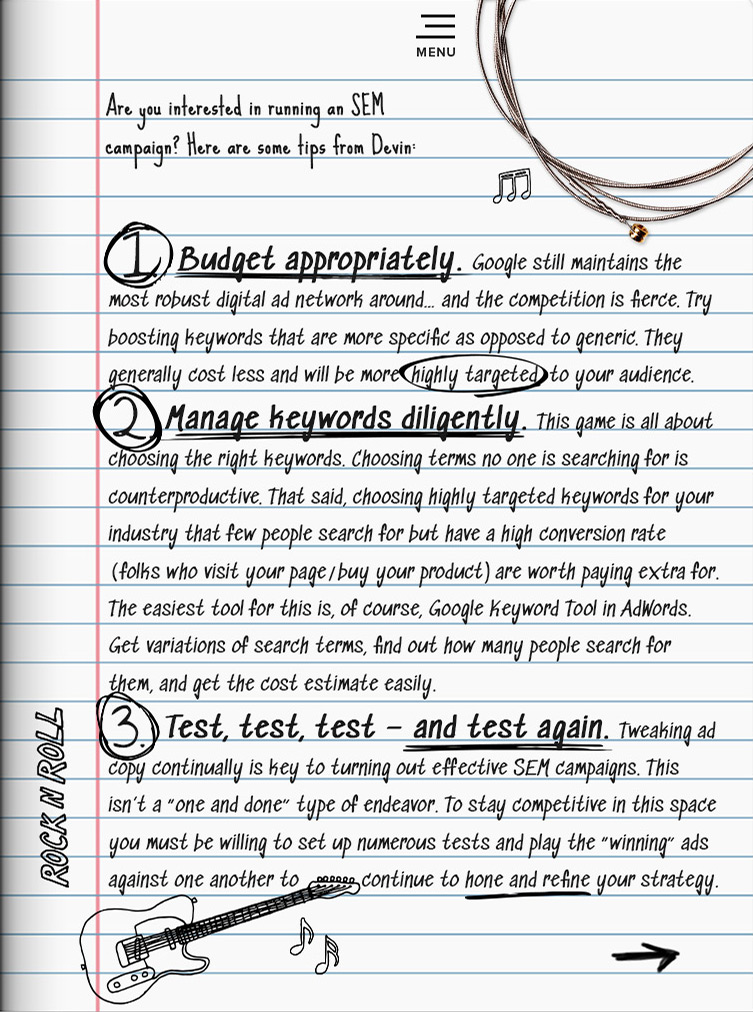 MENU
Are you interested in running an SEM
campaign? Here are some tips from Devin:
1. Budget appropriately. Google still maintains the
most robust digital ad network around... and the competition is fierce. Try
boosting keywords that are more specific as opposed to generic. They
generally cost less and will be more highly targeted to your audience.
2. Manage keywords diligently. This game is all about
choosing the right keywords. Choosing terms no one is searching for is
counterproductive. That said, choosing highly targeted keywords for your
industry that few people search for but have a high conversion rate
(folks who visit your page/buy your product) are worth paying extra for.
The easiest tool for this is, of course, Google Keyword Tool in AdWords.
Get variations of search terms, find out how many people search for
them, and get the cost estimate easily.
3. Test, test, test – and test again. Tweaking ad
copy continually is key to turning out effective SEM campaigns. This
isn't a "one and done" type of endeavor. To stay competitive in this space
you must be willing to set up numerous tests and play the "winning" ads
against one another to continue to hone and refine your strategy.
ROCK N ROLL